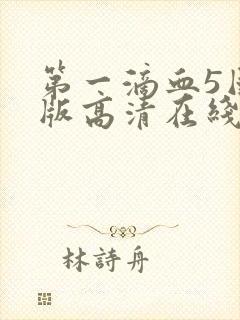 第一滴血5国
版高清在线
林詩舟